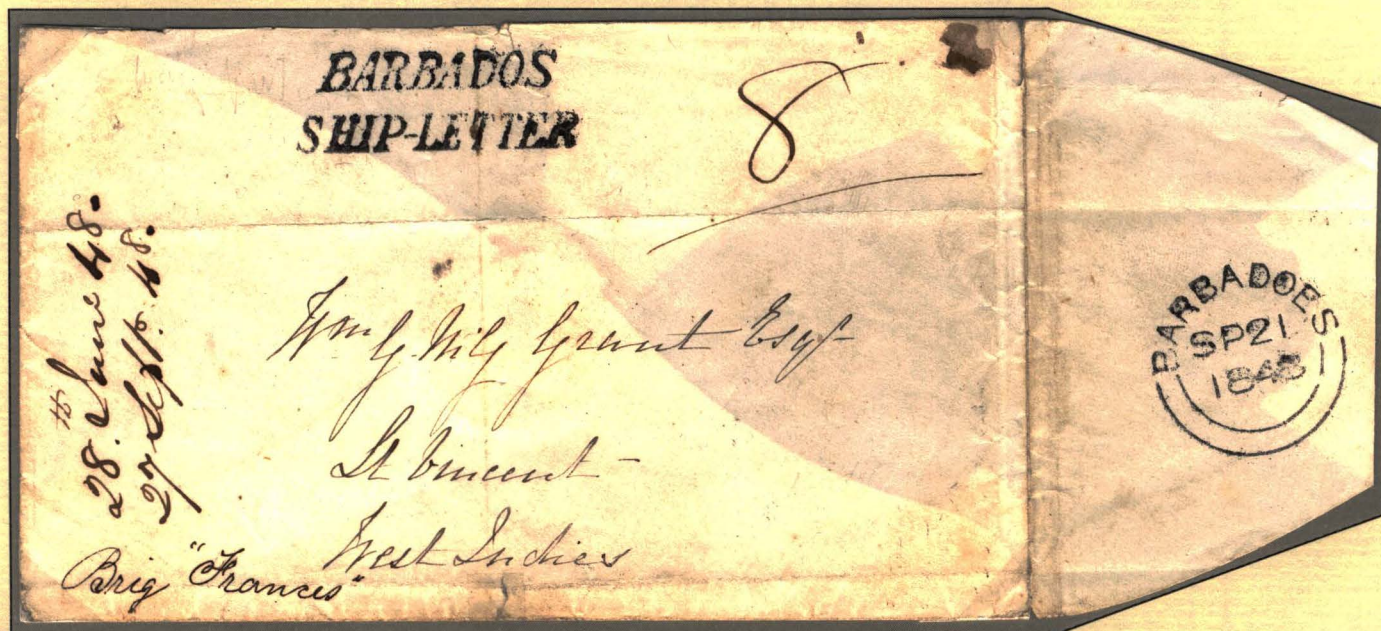 BARBADOS
SHIP-LETTER
8
28th June 48.
27 Sept. 48.
Wm G. McG Grant Esqr
St Vincent
West Indies
Brig "Frances"
BARBADOES
SP21
1848